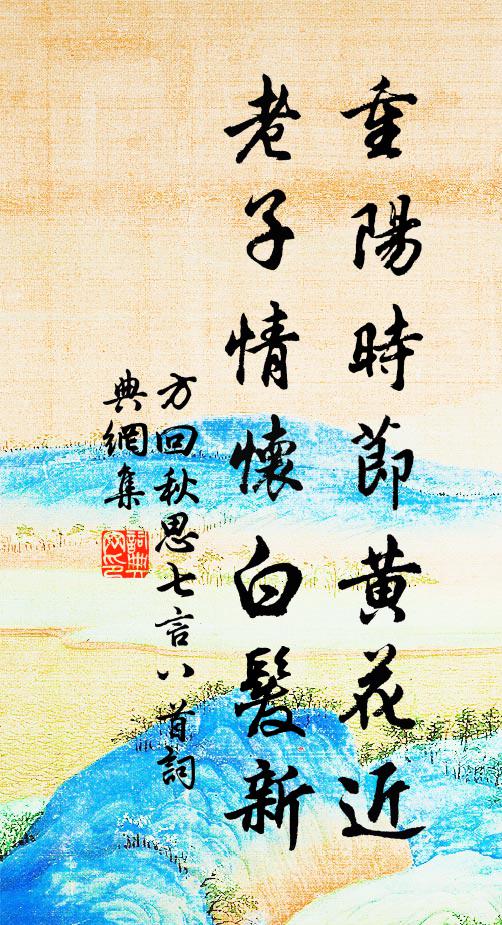 重陽時節黃花近
老子情懷白髮新
方回秋思七言八首詞
典網集
詞典網印